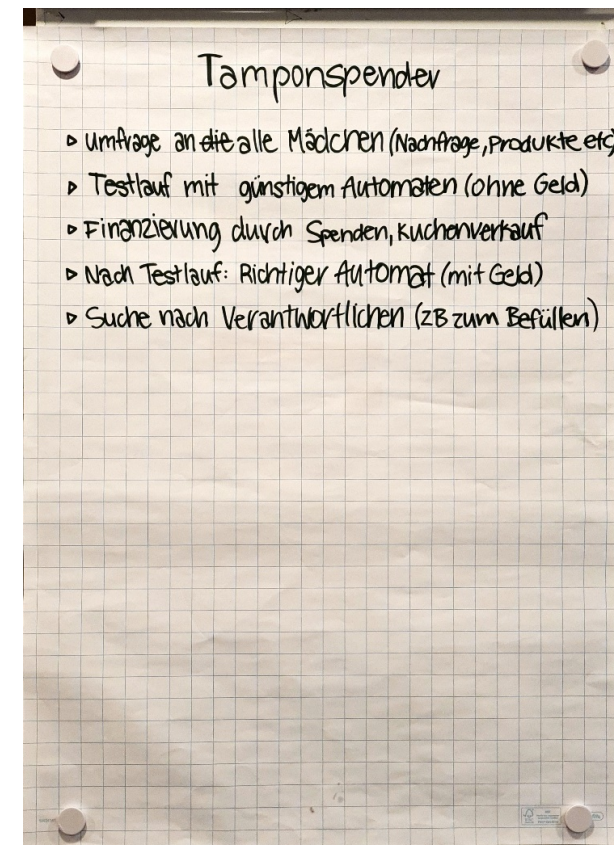 Tamponspender
▹ Umfrage an ~~die~~ alle Mädchen (Nachfrage, Produkte etc)
▹ Testlauf mit günstigem Automaten (ohne Geld)
▹ Finanzierung durch Spenden, Kuchenverkauf
▹ Nach Testlauf: Richtiger Automat (mit Geld)
▹ Suche nach Verantwortlichen (zB zum Befüllen)